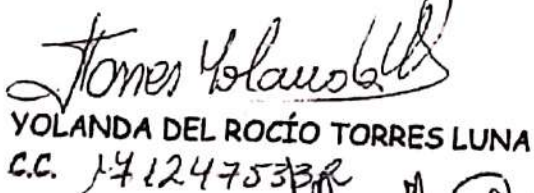 Torres Yolanda
YOLANDA DEL ROCÍO TORRES LUNA
C.C. 171247533